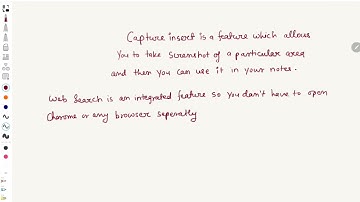 Capture insert is a feature which allows
You to take Screnshot of a particular area
and then you can use it in your notes.
Web Search is an integrated feature so you don't have to open
Chorome or any browser seperatly